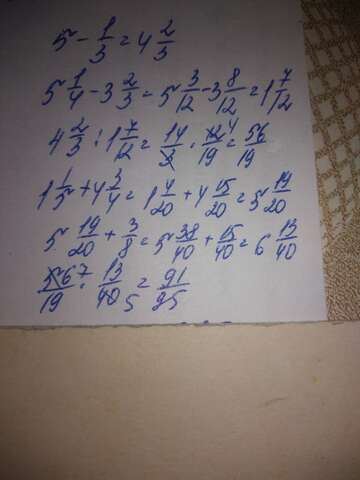 5 - 1/3 = 4 2/3
5 1/4 - 3 2/3 = 5 3/12 - 3 8/12 = 1 7/12
4 2/3 : 1 7/12 = 14/3 · 12/19 4 = 56/19
1 1/5 + 4 3/4 = 1 4/20 + 4 15/20 = 5 19/20
5 19/20 + 3/8 = 5 38/40 + 15/40 = 6 13/40
56 7/19 · 13/40 5 = 91/95